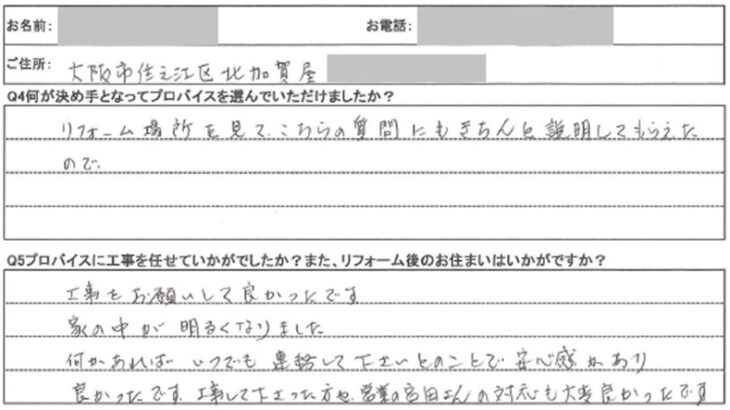 お名前: お電話:
ご住所: 大阪市住之江区北加賀屋
Q4何が決め手となってプロバイスを選んでいただけましたか?
リフォーム場所を見て、こちらの質問にもきちんと説明してもらえた
ので、
Q5プロバイスに工事を任せていかがでしたか?また、リフォーム後のお住まいはいかがですか?
工事をお願いして良かったです
家の中が明るくなりました
何かあればいつでも連絡して下さいとのことで安心感があり
良かったです。工事して下さった方や、営業の宮田さんの対応も大変良かったです